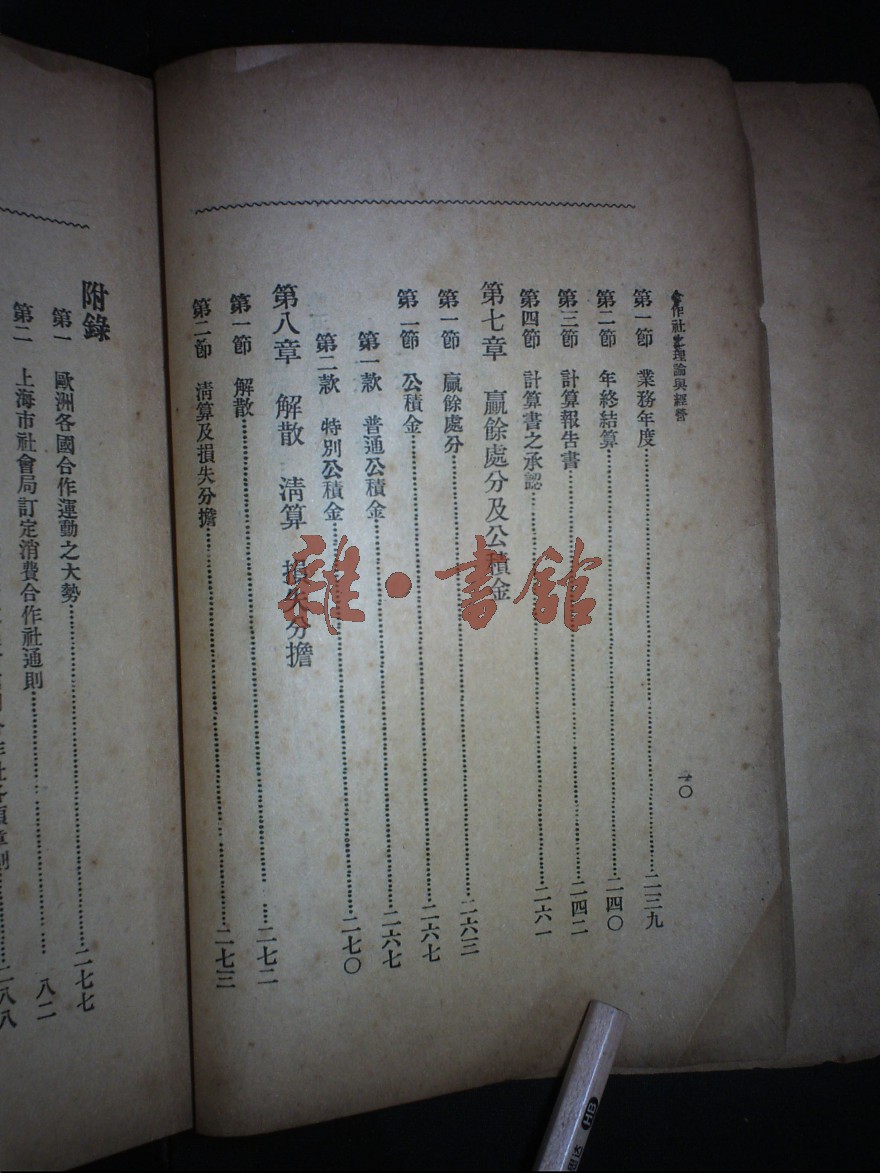 合作社之理論與經營
一〇
第一節 業務年度……二三九
第二節 年終結算……二四〇
第三節 計算報告書……二四二
第四節 計算書之承認……二六一
第七章 贏餘處分及公積金
第一節 贏餘處分……二六三
第二節 公積金……二六七
第一款 普通公積金……二六七
第二款 特別公積金……二七〇
第八章 解散 淸算 損失分擔
第一節 解散……二七二
第二節 淸算及損失分擔……二七三
附錄
第一 歐洲各國合作運動之大勢……二七七
第二 上海市社會局訂定消費合作社通則……八二
合作社各項章則……二八八
雜·書館
HB